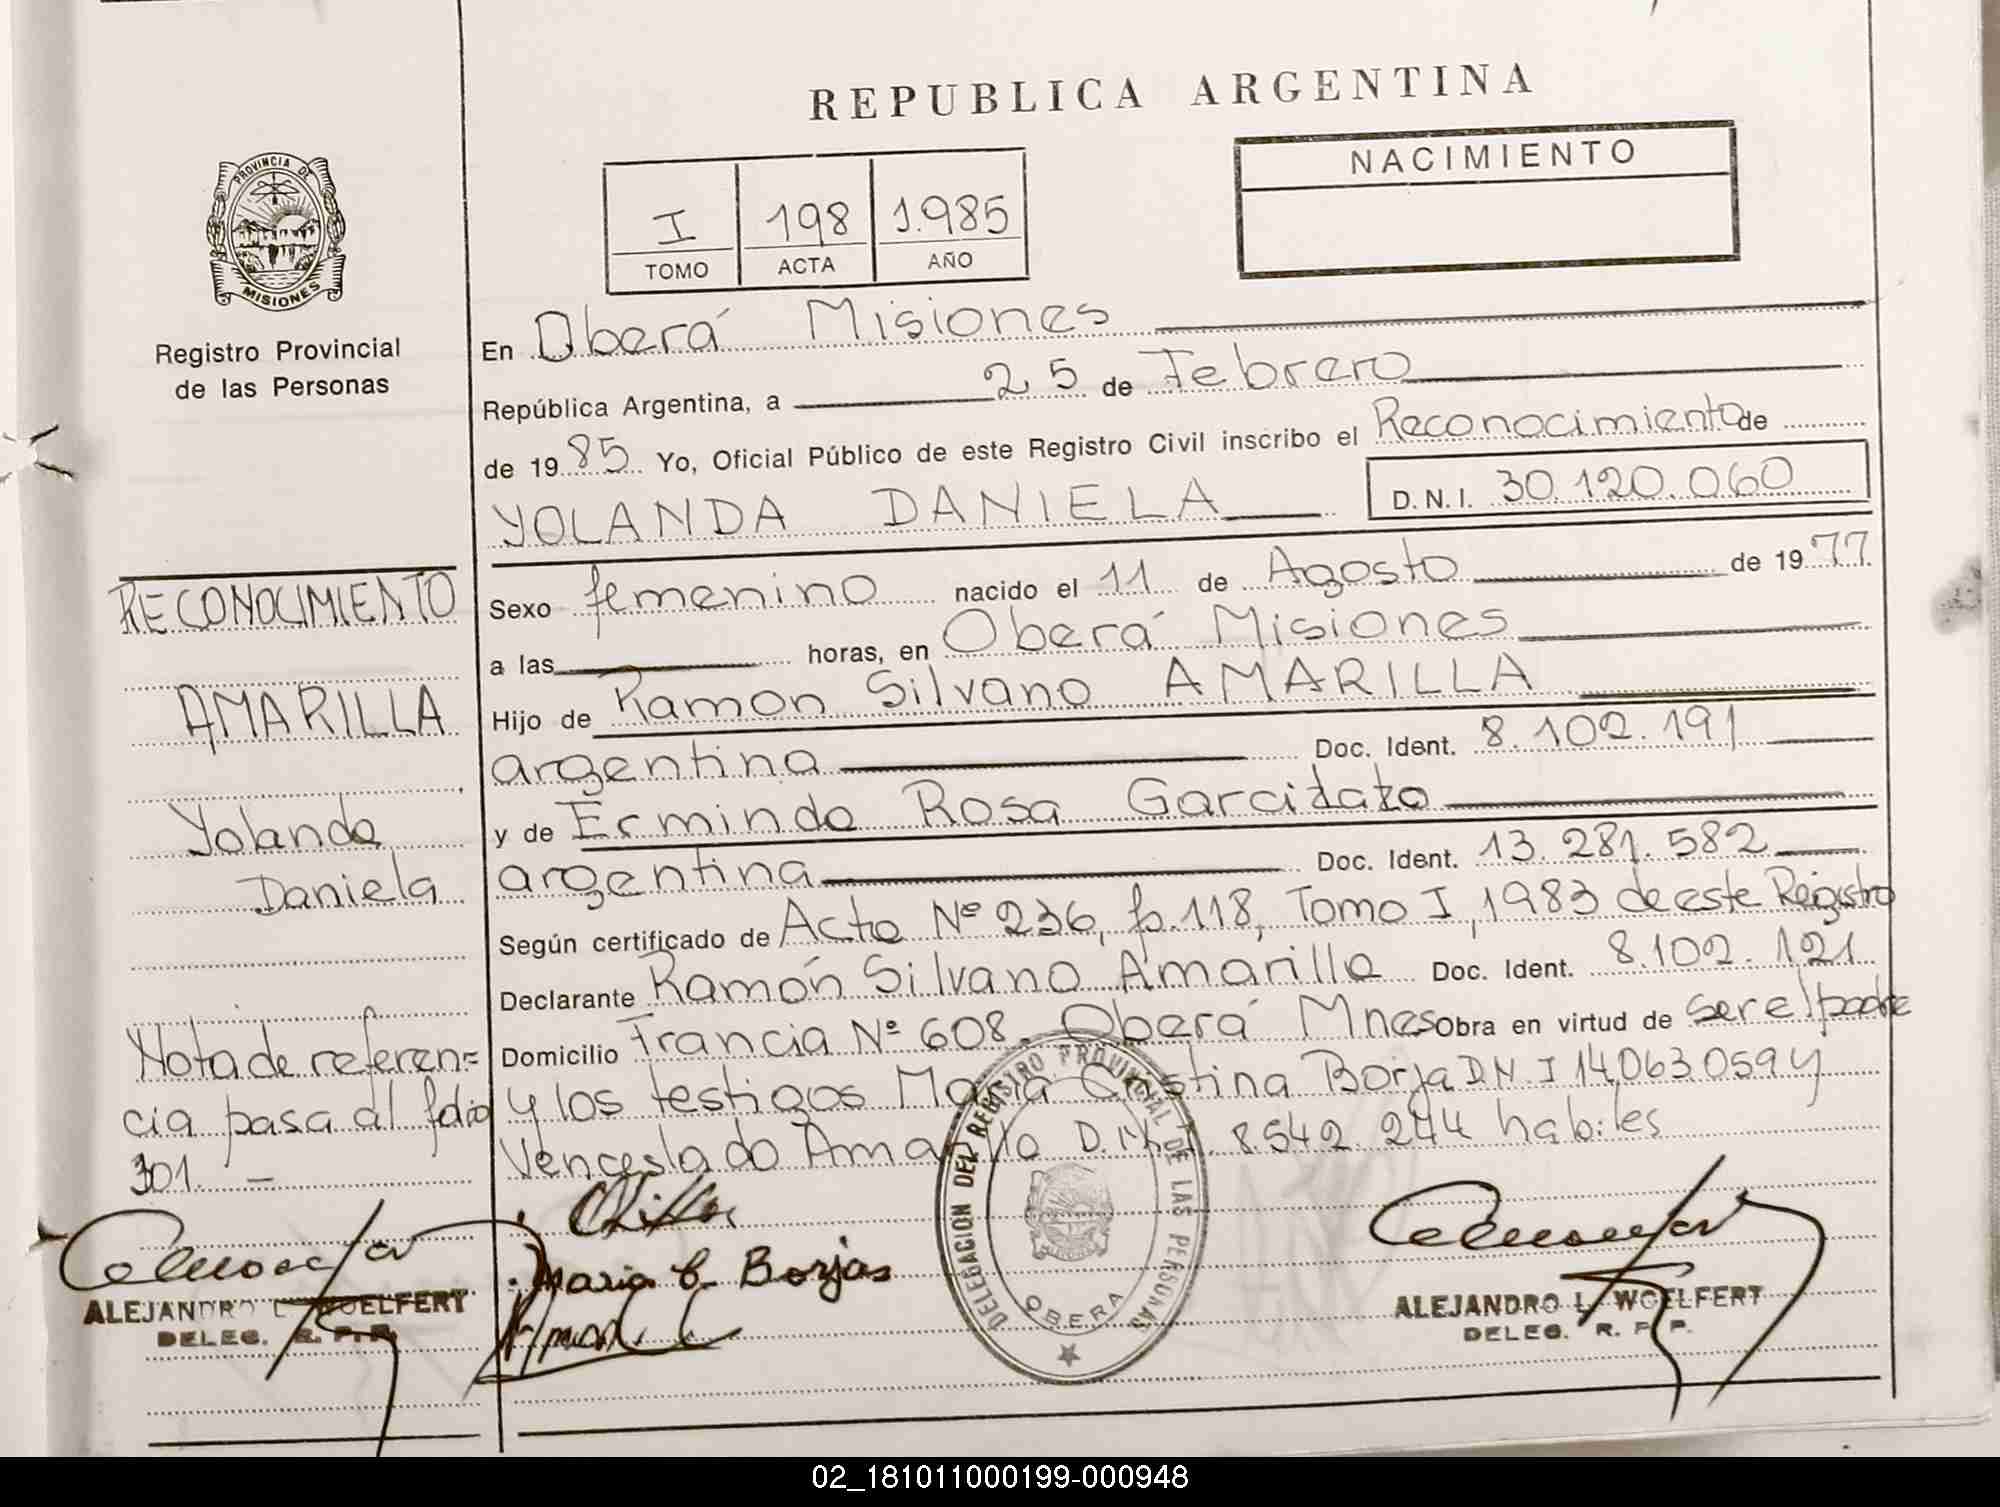 REPUBLICA ARGENTINA
NACIMIENTO
I 198 1.985
TOMO ACTA AÑO
PROVINCIA DE MISIONES
Registro Provincial
de las Personas
En Oberá Misiones
República Argentina, a 25 de Febrero
de 1985 Yo, Oficial Público de este Registro Civil inscribo el Reconocimiento de
YOLANDA DANIELA D.N.I. 30.120.060
Sexo femenino nacido el 11 de Agosto de 1977
a las horas, en Oberá Misiones
Hijo de Ramon Silvano AMARILLA
argentina Doc. Ident. 8.102.191
y de Erminda Rosa
argentina Doc. Ident. 13.281.582
Según certificado de Acta Nº 236, fo.118, Tomo I, 1983 de este Registro
Declarante Ramón Silvano Amarilla Doc. Ident. 8.102.121
Domicilio Francia Nº 608. Oberá Mnes Obra en virtud de ser el padre
y los testigos María Cristina Borja D.N.I 14.063.059 y
Venceslado Amarilla D.N.I. 8.542.244 habiles
RECONOCIMIENTO
AMARILLA
Yolanda
Daniela
Nota de referen=
cia pasa al folio
301. —
ALEJANDRO L. WOELFERT
DELEG. R. P. P.
Maria C. Borjas
DELEGACION DEL REGISTRO PROVINCIAL DE LAS PERSONAS
OBERA
ALEJANDRO L. WOELFERT
DELEG. R. P. P.
02_181011000199-000948